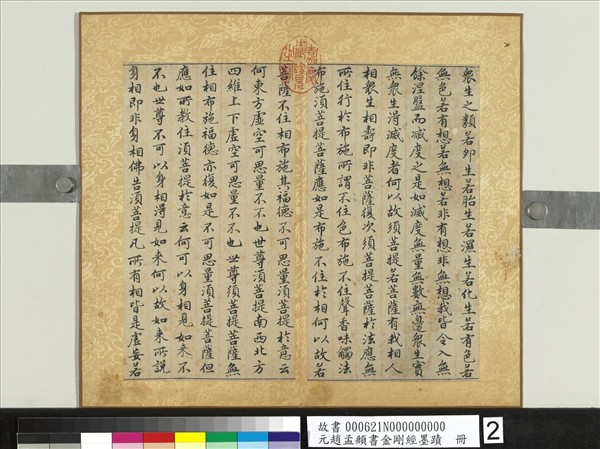 衆生之類若夘生若胎生若濕生若化生若有色若
無色若有想若無想若非有想非無想我皆令入無
餘涅盤而滅度之是如滅度無量無數無邊衆生實
無衆生得滅度者何以故須菩提若菩薩有我相人
相衆生相壽即非菩薩復次須菩提菩薩於法應無
所住行於布施所謂不住色布施不住聲香味觸法
布施須菩提菩薩應如是布施不住於相何以故若
菩薩不住相布施其福德不可思量須菩提於意云
何東方虛空可思量不不也世尊須菩提南西北方
四維上下虛空可思量不不也世尊須菩提菩薩無
住相布施福德亦復如是不可思量須菩提菩薩但
應如所教住須菩提於意云何可以身相見如来不
不也世尊不可以身相得見如来何以故如来所說
身相即非身相佛告須菩提凡所有相皆是虛妄若
故書 000621N000000000
元趙孟頫書金剛經墨蹟 冊
2